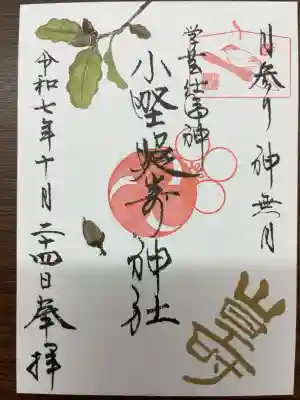 月参り 神無月
学芸仕事神
小野照嵜神社
令和七年十月二十四日奉拝